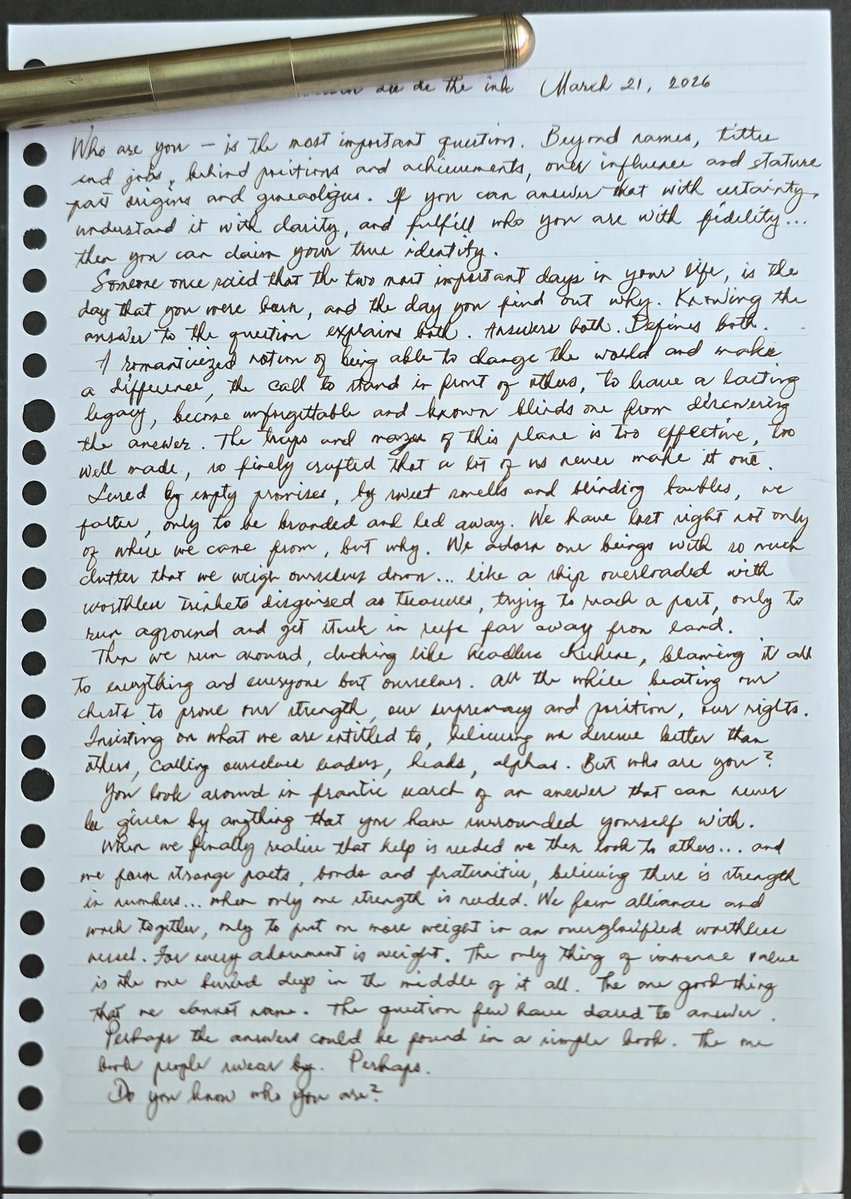 de the ink March 21, 2026
Who are you – is the most important question. Beyond names, titles
and jobs, behind positions and achievements, over influence and stature
past origins and geneologies. If you can answer that with certainty,
understand it with clarity, and fulfill who you are with fidelity...
then you can claim your true identity.
Someone once said that the two most important days in your life, is the
day that you were born, and the day you find out why. Knowing the
answer to the question explains both. Answers both. Defines both.
A romanticized notion of being able to change the world and make
a difference, the call to stand in front of others, to leave a lasting
legacy, become unforgettable and known blinds one from discovering
the answer. The traps and mazes of this plane is too effective, too
well made, so finely crafted that a lot of us never make it out.
Lured by empty promises, by sweet smells and blinding baubles, we
falter, only to be branded and led away. We have lost sight not only
of where we came from, but why. We adorn our beings with so much
clutter that we weigh ourselves down... like a ship overloaded with
worthless trinkets disguised as treasures, trying to reach a port, only to
run aground and get stuck in reefs far away from land.
Then we run around, clucking like headless chickens, blaming it all
to everything and everyone but ourselves. All the while beating our
chests to prove our strength, our supremacy and position, our rights.
Insisting on what we are entitled to, believing we deserve better than
others, calling ourselves leaders, heads, alphas. But who are you?
You look around in frantic search of an answer that can never
be given by anything that you have surrounded yourself with.
When we finally realize that help is needed we then look to others... and
we form strange pacts, bonds and fraternities, believing there is strength
in numbers... when only one strength is needed. We form alliances and
work together, only to put on more weight in an overglorified worthless
vessel. For every adornment is weight. The only thing of immense value
is the one buried deep in the middle of it all. The one good thing
that we cannot name. The question few have dared to answer.
Perhaps the answers could be found in a simple book. The one
book people swear by. Perhaps.
Do you know who you are?